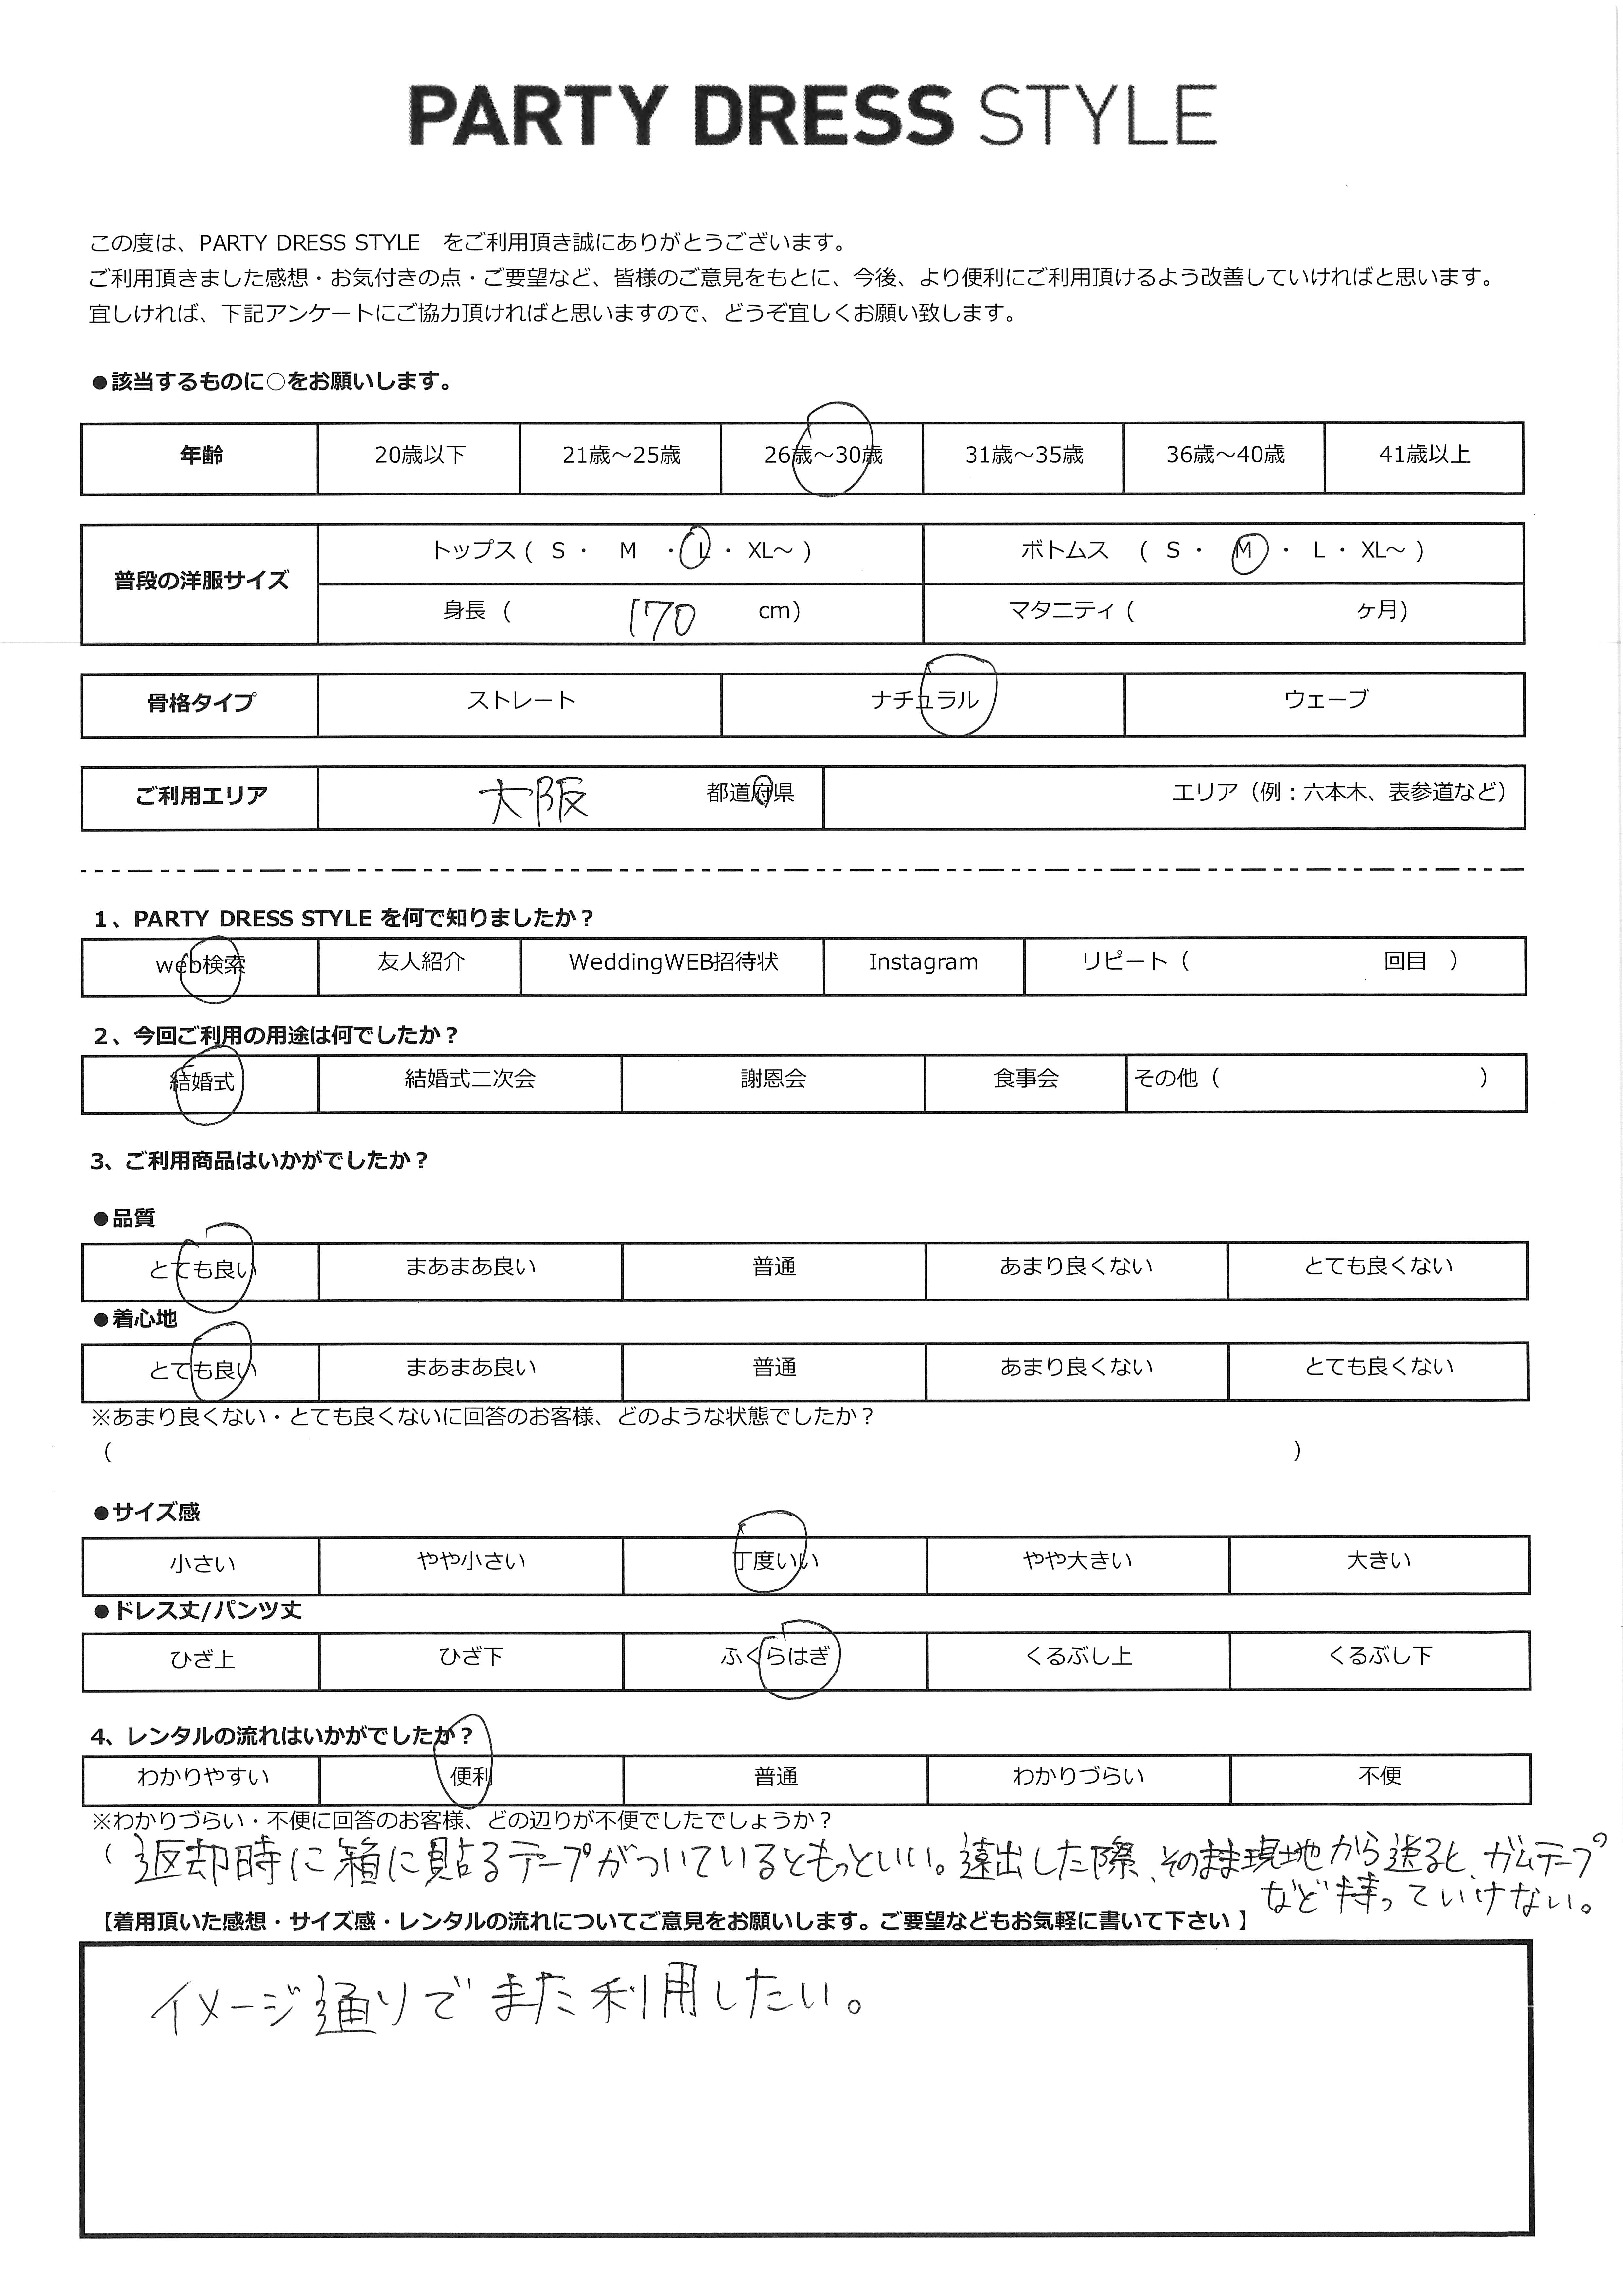 PARTY DRESS STYLE
この度は、PARTY DRESS STYLE　をご利用頂き誠にありがとうございます。
ご利用頂きました感想・お気付きの点・ご要望など、皆様のご意見をもとに、今後、より便利にご利用頂けるよう改善していければと思います。
宜しければ、下記アンケートにご協力頂ければと思いますので、どうぞ宜しくお願い致します。
●該当するものに○をお願いします。
年齢 20歳以下 21歳～25歳 26歳～30歳 31歳～35歳 36歳～40歳 41歳以上
普段の洋服サイズ トップス ( S ・ M ・ L ・ XL～ ) ボトムス ( S ・ M ・ L ・ XL～ )
身長 ( 170 cm) マタニティ ( ヶ月)
骨格タイプ ストレート ナチュラル ウェーブ
ご利用エリア 大阪 都道府県 エリア（例：六本木、表参道など）
1、PARTY DRESS STYLE を何で知りましたか？
web検索 友人紹介 WeddingWEB招待状 Instagram リピート（ 回目 ）
2、今回ご利用の用途は何でしたか？
結婚式 結婚式二次会 謝恩会 食事会 その他（ ）
3、ご利用商品はいかがでしたか？
●品質
とても良い まあまあ良い 普通 あまり良くない とても良くない
●着心地
とても良い まあまあ良い 普通 あまり良くない とても良くない
※あまり良くない・とても良くないに回答のお客様、どのような状態でしたか？
( )
●サイズ感
小さい やや小さい 丁度いい やや大きい 大きい
●ドレス丈/パンツ丈
ひざ上 ひざ下 ふくらはぎ くるぶし上 くるぶし下
4、レンタルの流れはいかがでしたか？
わかりやすい 便利 普通 わかりづらい 不便
※わかりづらい・不便に回答のお客様、どの辺りが不便でしたでしょうか？
( 返却時に箱に貼るテープがついているともっといい。遠出した際、そのまま現地から送ると、ガムテープ
など持っていけない。
【着用頂いた感想・サイズ感・レンタルの流れについてご意見をお願いします。ご要望などもお気軽に書いて下さい 】
イメージ通りでまた利用したい。